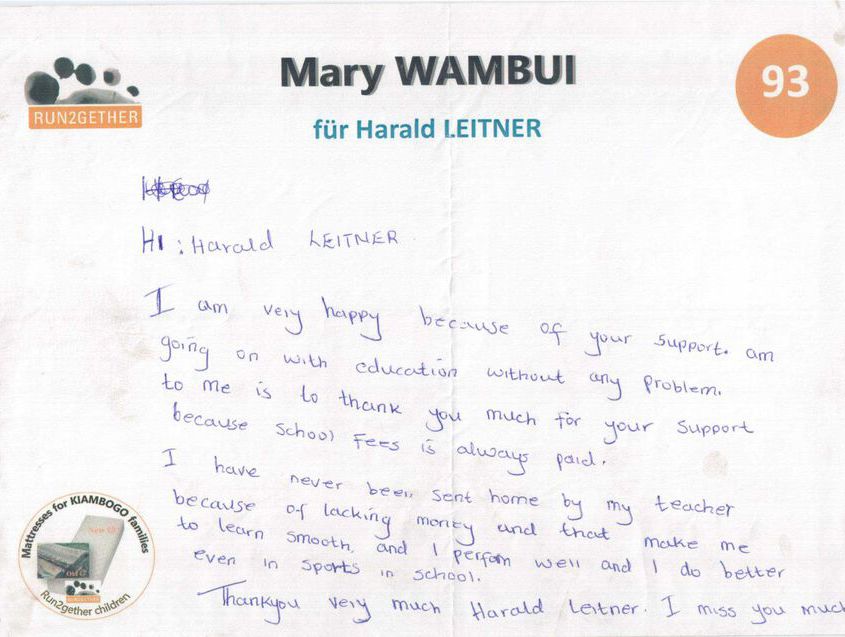 RUN2GETHER
Mary WAMBUI
für Harald LEITNER
93
HI : Harald LEITNER
I am very happy because of your support. am
going on with education without any problem.
to me is to thank you much for your support
because school Fees is always paid.
I have never been sent home by my teacher
because of lacking money and that make me
to learn smooth, and I perfom well and I do better
even in sports in school.
Thankyou very much Harald Leitner. I miss you much
Mattresses for KIAMBOGO families
Run2gether children